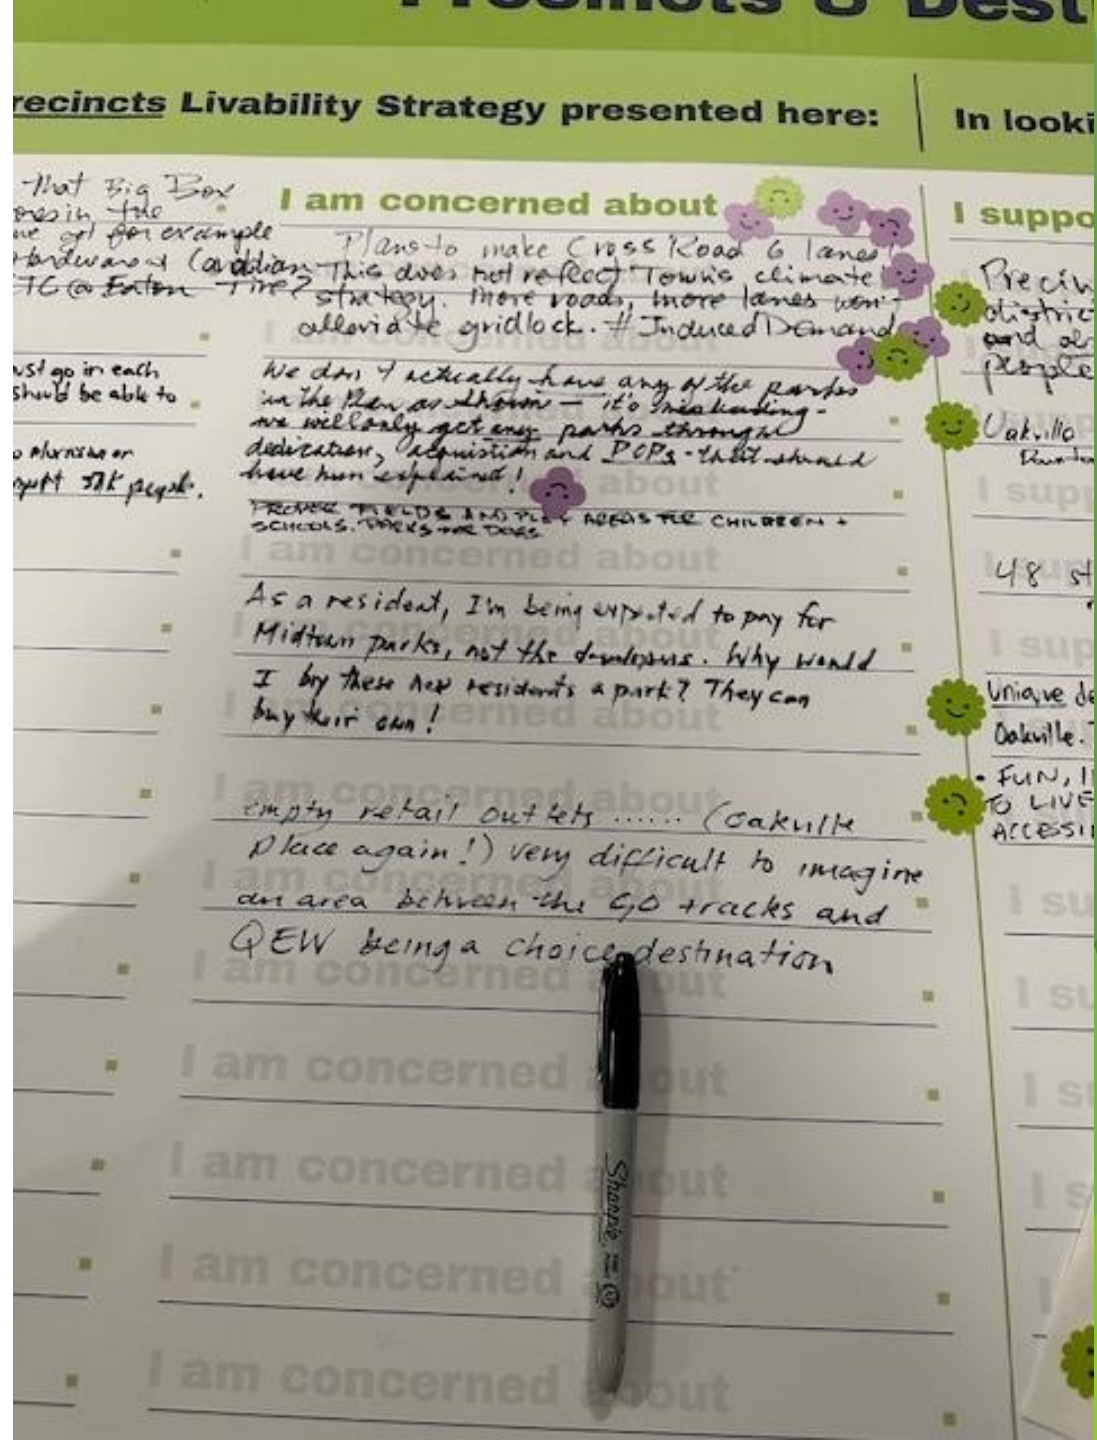 Precincts & Dest
recincts Livability Strategy presented here:
In looki
That Big Box
ores in the
we got for example
Hardware at Canadian
ETC @ Eaton Tire?
ust go in each
should be able to
I am concerned about
Plans to make Cross Road 6 lanes!
This does not reflect Town's climate
strategy. More roads, more lanes won't
alleviate gridlock. #InducedDemand
I am concerned about
We don't actually have any of the parks
in the Plan as shown — it's misleading -
we will only get any parks through
dedication, acquisition and POPs - that should
have been explained!
PROPER FIELDS AND PLAY AREAS FOR CHILDREN +
SCHOOLS. PARKS FOR DOGS
I am concerned about
As a resident, I'm being expected to pay for
Midtown parks, not the developers. Why would
I buy these new residents a park? They can
buy their own!
I am concerned about
empty retail outlets ...... (Oakville
Place again!) very difficult to imagine
an area between the GO tracks and
QEW being a choice destination
I am concerned about
I am concerned about
I am concerned about
I am concerned about
I am concerned about
Sharpie
I suppo
Precin
district
and al
people
Oakville
48 st
Unique de
Oakville.
• FUN, I
TO LIVE
ACCESSI
I su
I su
I s
I s
I